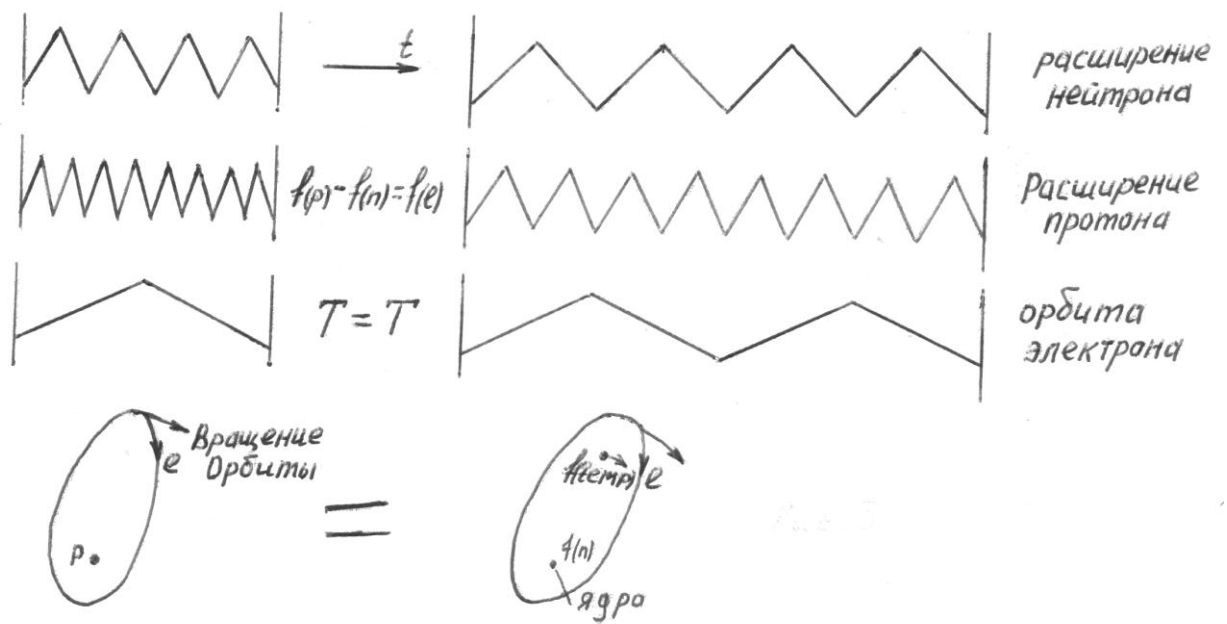 t
расширение
нейтрона
f(p)-f(n)=f(e)
Расширение
протона
T = T
орбита
электрона
Вращение
Орбиты
e
p
e
f(n)
ядра